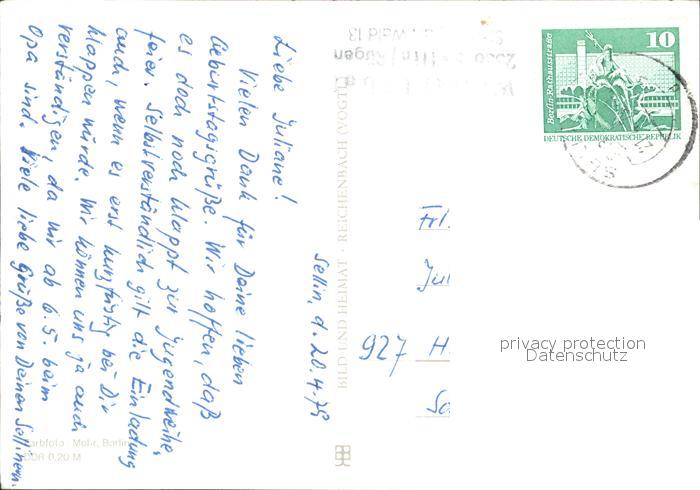 Sellin, d. 20.4.79
Liebe Juliane!
Vielen Dank für Deine lieben
Geburtstagsgrüße. Wir hoffen, daß
es doch noch klappt zur Jugendweihe-
feier. Selbstverständlich gilt die Einladung
auch, wenn es erst kurzfristig bei Dir
klappen würde. Wir können uns ja auch
verständigen, da wir ab 6.5. beim
Opa sind. Viele liebe Grüße von Deinen Sellinern.
BILD UND HEIMAT · REICHENBACH (VOGTL
Farbfoto: Mohr, Berlin
DDR 0,20 M
2356 Sellin/Rügen
Wald 13
10
Berlin · Rathausstraße
DEUTSCHE DEMOKRATISCHE REPUBLIK
Frl.
Jul
927 H
privacy protection
Datenschutz